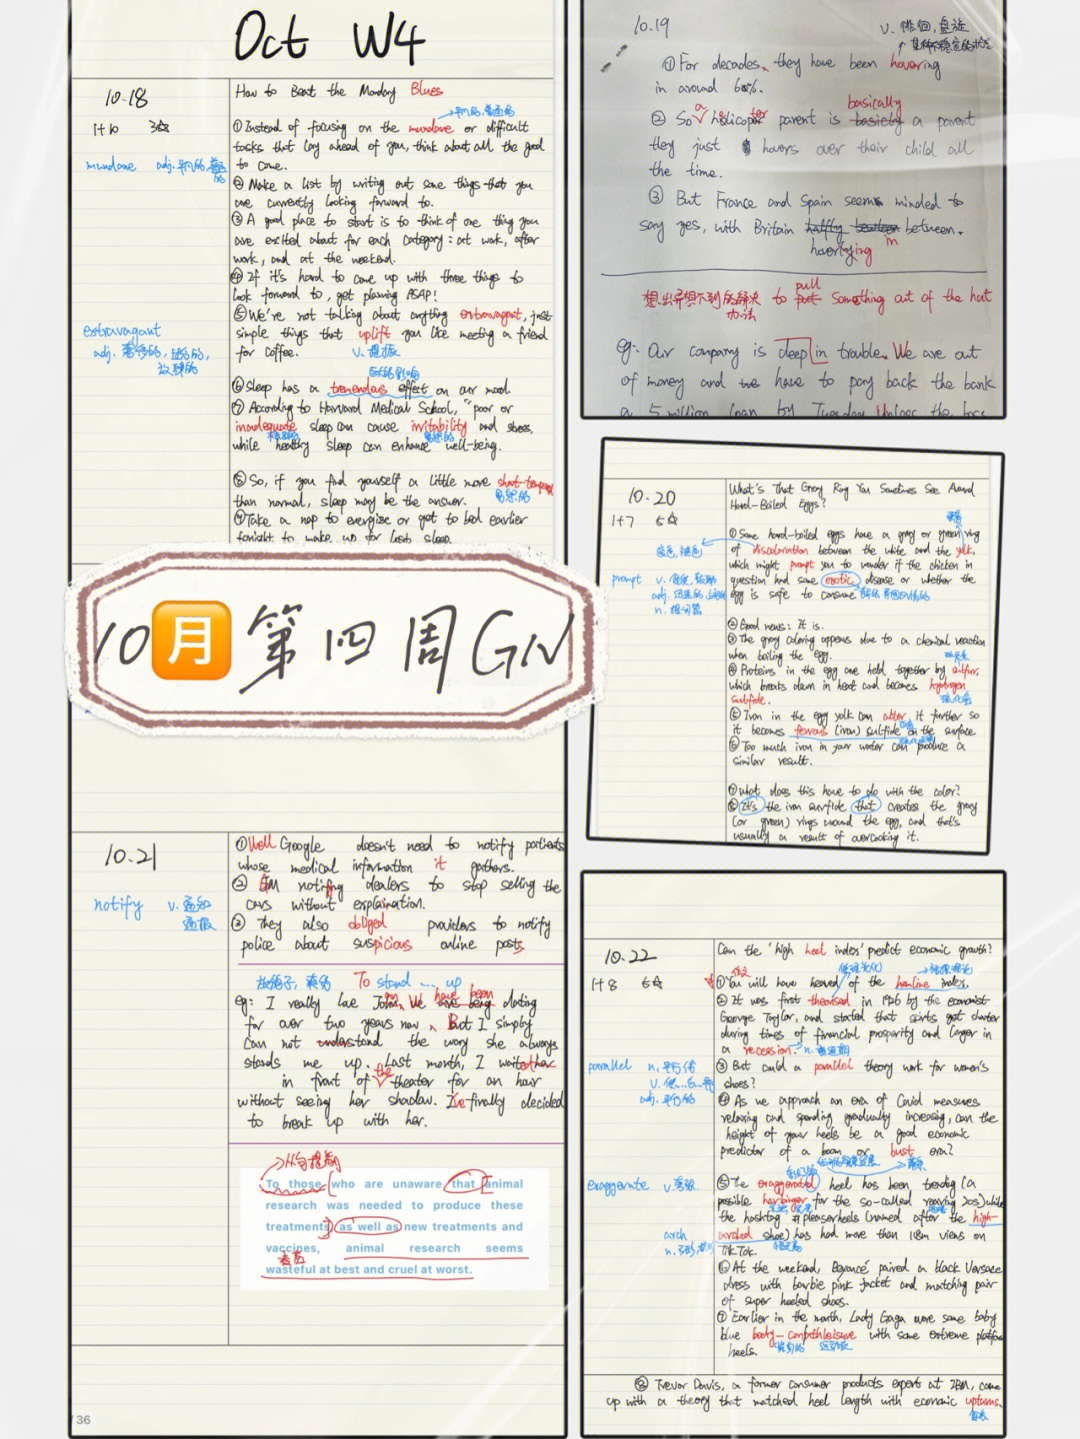 Oct W4
10.18
1+10 3☆
mundane adj. 平凡的,普通的
extravagant
adj. 奢侈的,过分的,
放肆的
How to Beat the Monday Blues
→平凡的,普通的
①Instead of focusing on the mundane or difficult
tasks that lay ahead of you, think about all the good
to come.
② Make a list by writing out some things that you
are currently looking forward to.
③ A good place to start is to think of one thing you
are excited about for each category: at work, after
work, and at the weekend.
④ If it's hard to come up with three things to
look forward to, get planning ASAP!
⑤ We're not talking about anything extravagant, just
simple things that uplift you like meeting a friend
for coffee. v. 提振
巨大的影响
⑥ Sleep has a tremendous effect on our mood
⑦ According to Harvard Medical School, "poor or
inadequate sleep can cause irritability and stress,
while healthy sleep can enhance well-being.
⑧ So, if you find yourself a little more short-tempered
than normal, sleep may be the answer. 易怒的
⑨ Take a nap to energize or get to bed earlier
tonight to make up for lost sleep.
10月第四周GN
10.21
notify v. 通知
通报
① Well Google doesn't need to notify patients
whose medical information it gathers.
② GM notifying dealers to stop selling the
cars without explaination.
③ They also obliged providers to notify
police about suspicious online posts
放鸽子,爽约 To stand ... up
eg: I really love Joan. We have been dating
for over two years now, But I simply
can not understand the way she always
stands me up. Last month, I waited
in front of the theater for an hour
without seeing her shadow. I've finally decided
to break up with her.
To those who are unaware that animal
research was needed to produce these
treatments as well as new treatments and
vaccines, animal research seems
wasteful at best and cruel at worst.
36
10.19
v. 徘徊,盘旋
① For decades, they have been hovering
in around 60%.
basically
② So a helicopter parent is basicly a parent
they just hovers over their child all
the time.
③ But France and Spain seem minded to
say yes, with Britain between.
in
pull
想出异想不到的解决 to put something out of the hat
办法
eg: Our company is deep in trouble. We are out
of money and we have to pay back the bank
a 5 million loan by Tuesday Unless the boss
10.20
1+7 5☆
prompt v. 促使,鼓励
n. 提词器
What's That Gray Ring You Sometimes See Around
Hard-Boiled Eggs?
① Some hard-boiled eggs have a gray or green ring
of discoloration between the white and the yolk,
which might prompt you to wonder if the chicken in
question had some exotic disease or whether the
egg is safe to consume
② Good news: It is.
③ The gray coloring appears due to a chemical reaction
when boiling the egg.
④ Proteins in the egg are held together by sulfur,
which breaks down in heat and becomes hydrogen
sulfide. 硫化氢
⑤ Iron in the egg yolk can alter it further so
it becomes ferrous (iron) sulfide on the surface
⑥ Too much iron in your water can produce a
similar result.
⑦ what does this have to do with the color?
⑧ It's the iron surfide that creates the gray
(or green) rings around the egg, and that's
usually a result of overcooking it.
10.22
1+8 6☆
parallel n. 平行线
adj. 平行的
exaggerate v. 夸张
arch
Can the 'high heel index' predict economic growth?
① You will have heard of the hemline index.
② It was first theorised in 1926 by the economist
George Taylor, and stated that skirts got shorter
during times of financial prosperity and longer in
a recession. n. 衰退期
③ But could a parallel theory work for women's
shoes?
④ As we approach an era of Covid measures
relaxing and spending gradually increasing, can the
height of your heels be a good economic
predictor of a boom or bust era?
⑤ The exaggerated heel has been trending (a
possible harbinger for the so-called roaring 20s) while
the hashtag #pleaserheels (named after the high-
arched shoe) has had more than 118m views on
TikTok.
⑥ At the weekend, Beyoncé paired a black Versace
dress with barbie pink jacket and matching pair
of super heeled shoes.
⑦ Earlier in the month, Lady Gaga wore some baby
blue body-con athleisure with some extreme platform
heels.
⑧ Trevor Davis, a former consumer products expert at IBM, came
up with a theory that matched heel length with economic upturns.